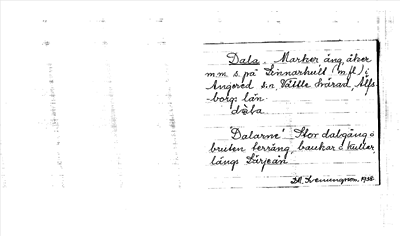 Dala. Marker äng, åker
m.m. s. på Linnarhult (m.fl.) i
Angered s:n, Vättle härad, Älfs-
borgs län.
dàba
Dalarne' Stor dalgång o
bruten terräng, backar o kullar
längs Lärjeån
1938